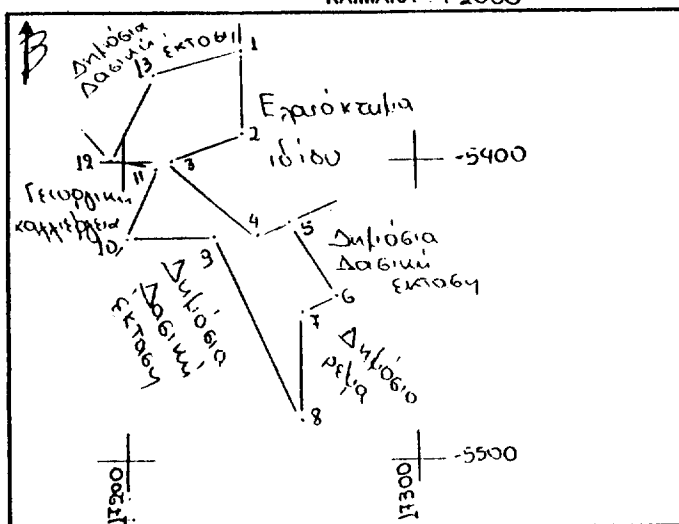 Β
Δημόσια
Δασική έκταση
13
1
2
Ελαιόκτημα
ιδίου
-5400
12
11
3
Γεωργική
καλλιέργεια
10
4
5
9
Δημόσια
Δασική
έκταση
6
7
Δημόσια
Δασική
έκταση
Δημόσιο
ρέμα
8
-5500
17200
17300